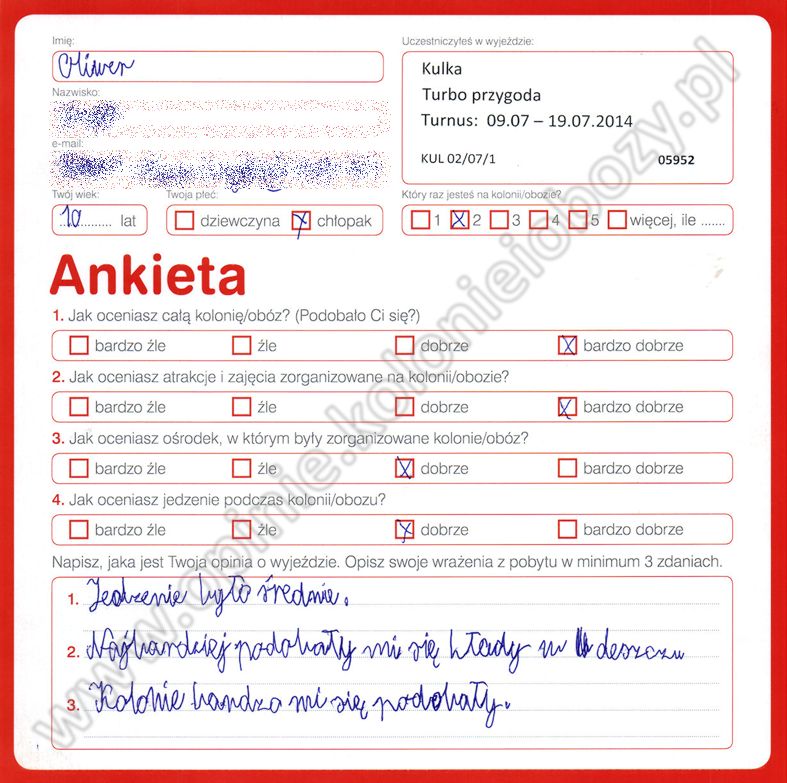 Imię:
Oliwer
Uczestniczyłeś w wyjeździe:
Kulka
Turbo przygoda
Turnus: 09.07 – 19.07.2014
KUL 02/07/1 05952
Nazwisko:
e-mail:
Twój wiek:
10 lat
Twoja płeć:
dziewczyna chłopak
Który raz jesteś na kolonii/obozie?
1 2 3 4 5 więcej, ile .......
Ankieta
1. Jak oceniasz całą kolonię/obóz? (Podobało Ci się?)
bardzo źle źle dobrze bardzo dobrze
2. Jak oceniasz atrakcje i zajęcia zorganizowane na kolonii/obozie?
bardzo źle źle dobrze bardzo dobrze
3. Jak oceniasz ośrodek, w którym były zorganizowane kolonie/obóz?
bardzo źle źle dobrze bardzo dobrze
4. Jak oceniasz jedzenie podczas kolonii/obozu?
bardzo źle źle dobrze bardzo dobrze
Napisz, jaka jest Twoja opinia o wyjeździe. Opisz swoje wrażenia z pobytu w minimum 3 zdaniach.
1. Jedzenie było średnie.
2. Najbardziej podobały mi się kłady w deszczu
3. Kolonie bardzo mi się podobały.
www.opinie.kolonieiobozy.pl